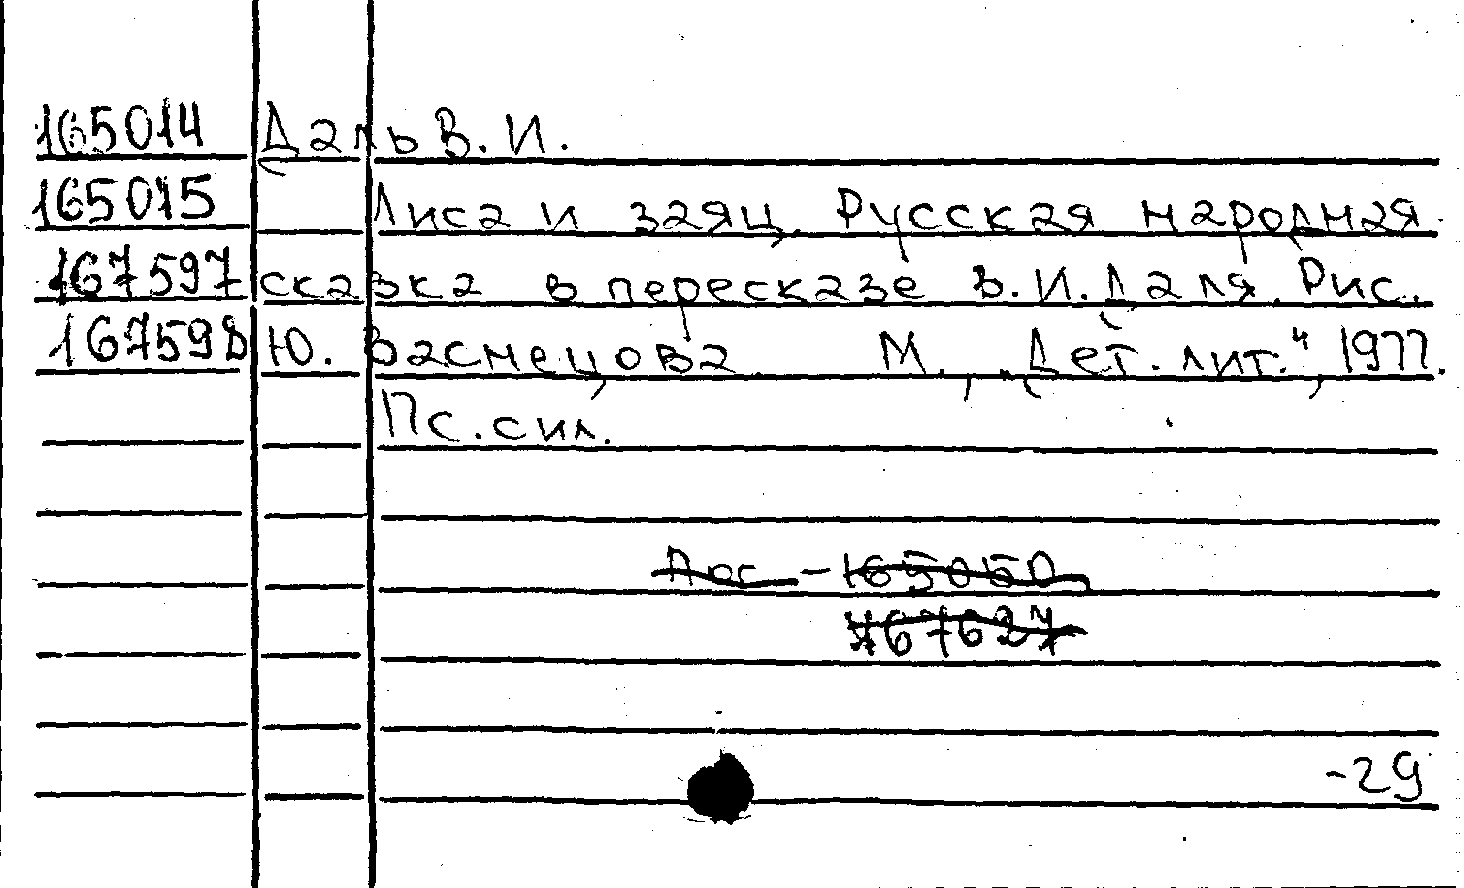 165014 Даль В. И.
165015 Лиса и заяц. Русская народная
167597 сказка в пересказе В. И. Даля. Рис.
167598 Ю. Васнецова. М., „Дет. лит.", 1977.
Пс. сил.
165050
167627
-29